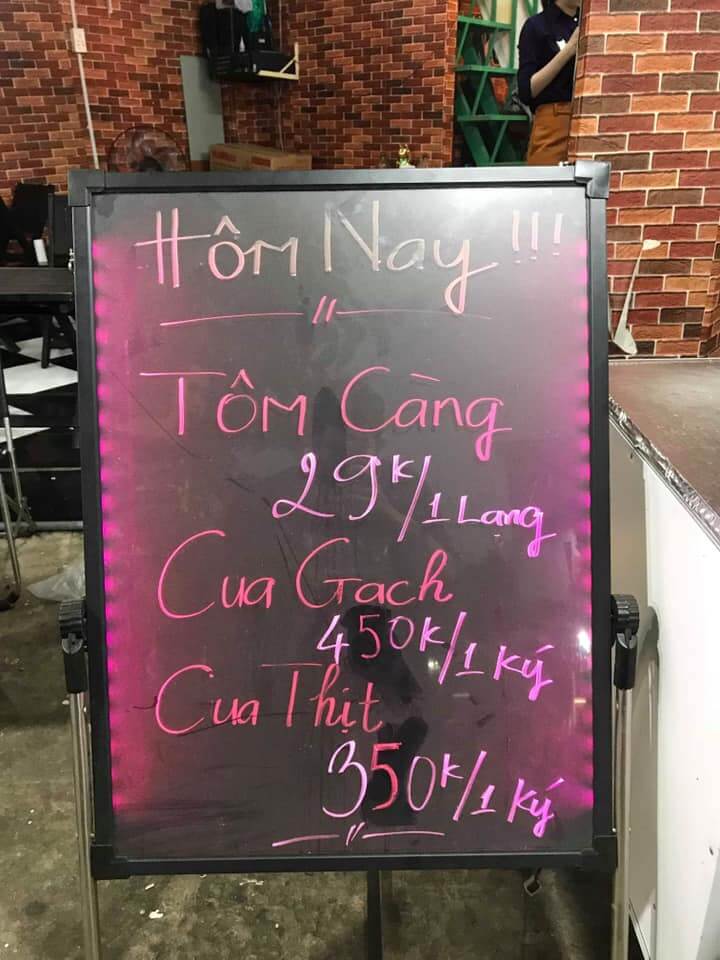 Hôm Nay !!!
Tôm Càng
29K/1 Lạng
Cua Gạch
450K/1 Ký
Cua Thịt
350K/1 Ký